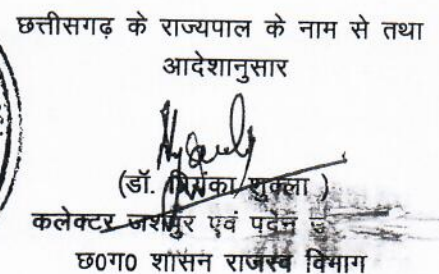 छत्तीसगढ़ के राज्यपाल के नाम से तथा
आदेशानुसार
(डॉ. प्रियंका शुक्ला )
कलेक्टर जशपुर एवं पदेन
छ0ग0 शासन राजस्व विभाग